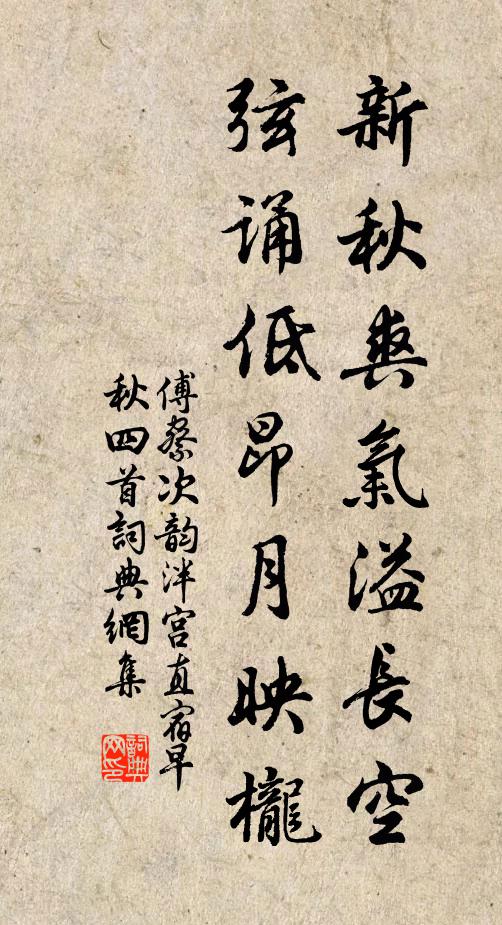 新秋爽氣溢長空
弦誦低昂月映櫳
傅察次韵泮宫直宿早
秋四首詞典網集
詞典
网印